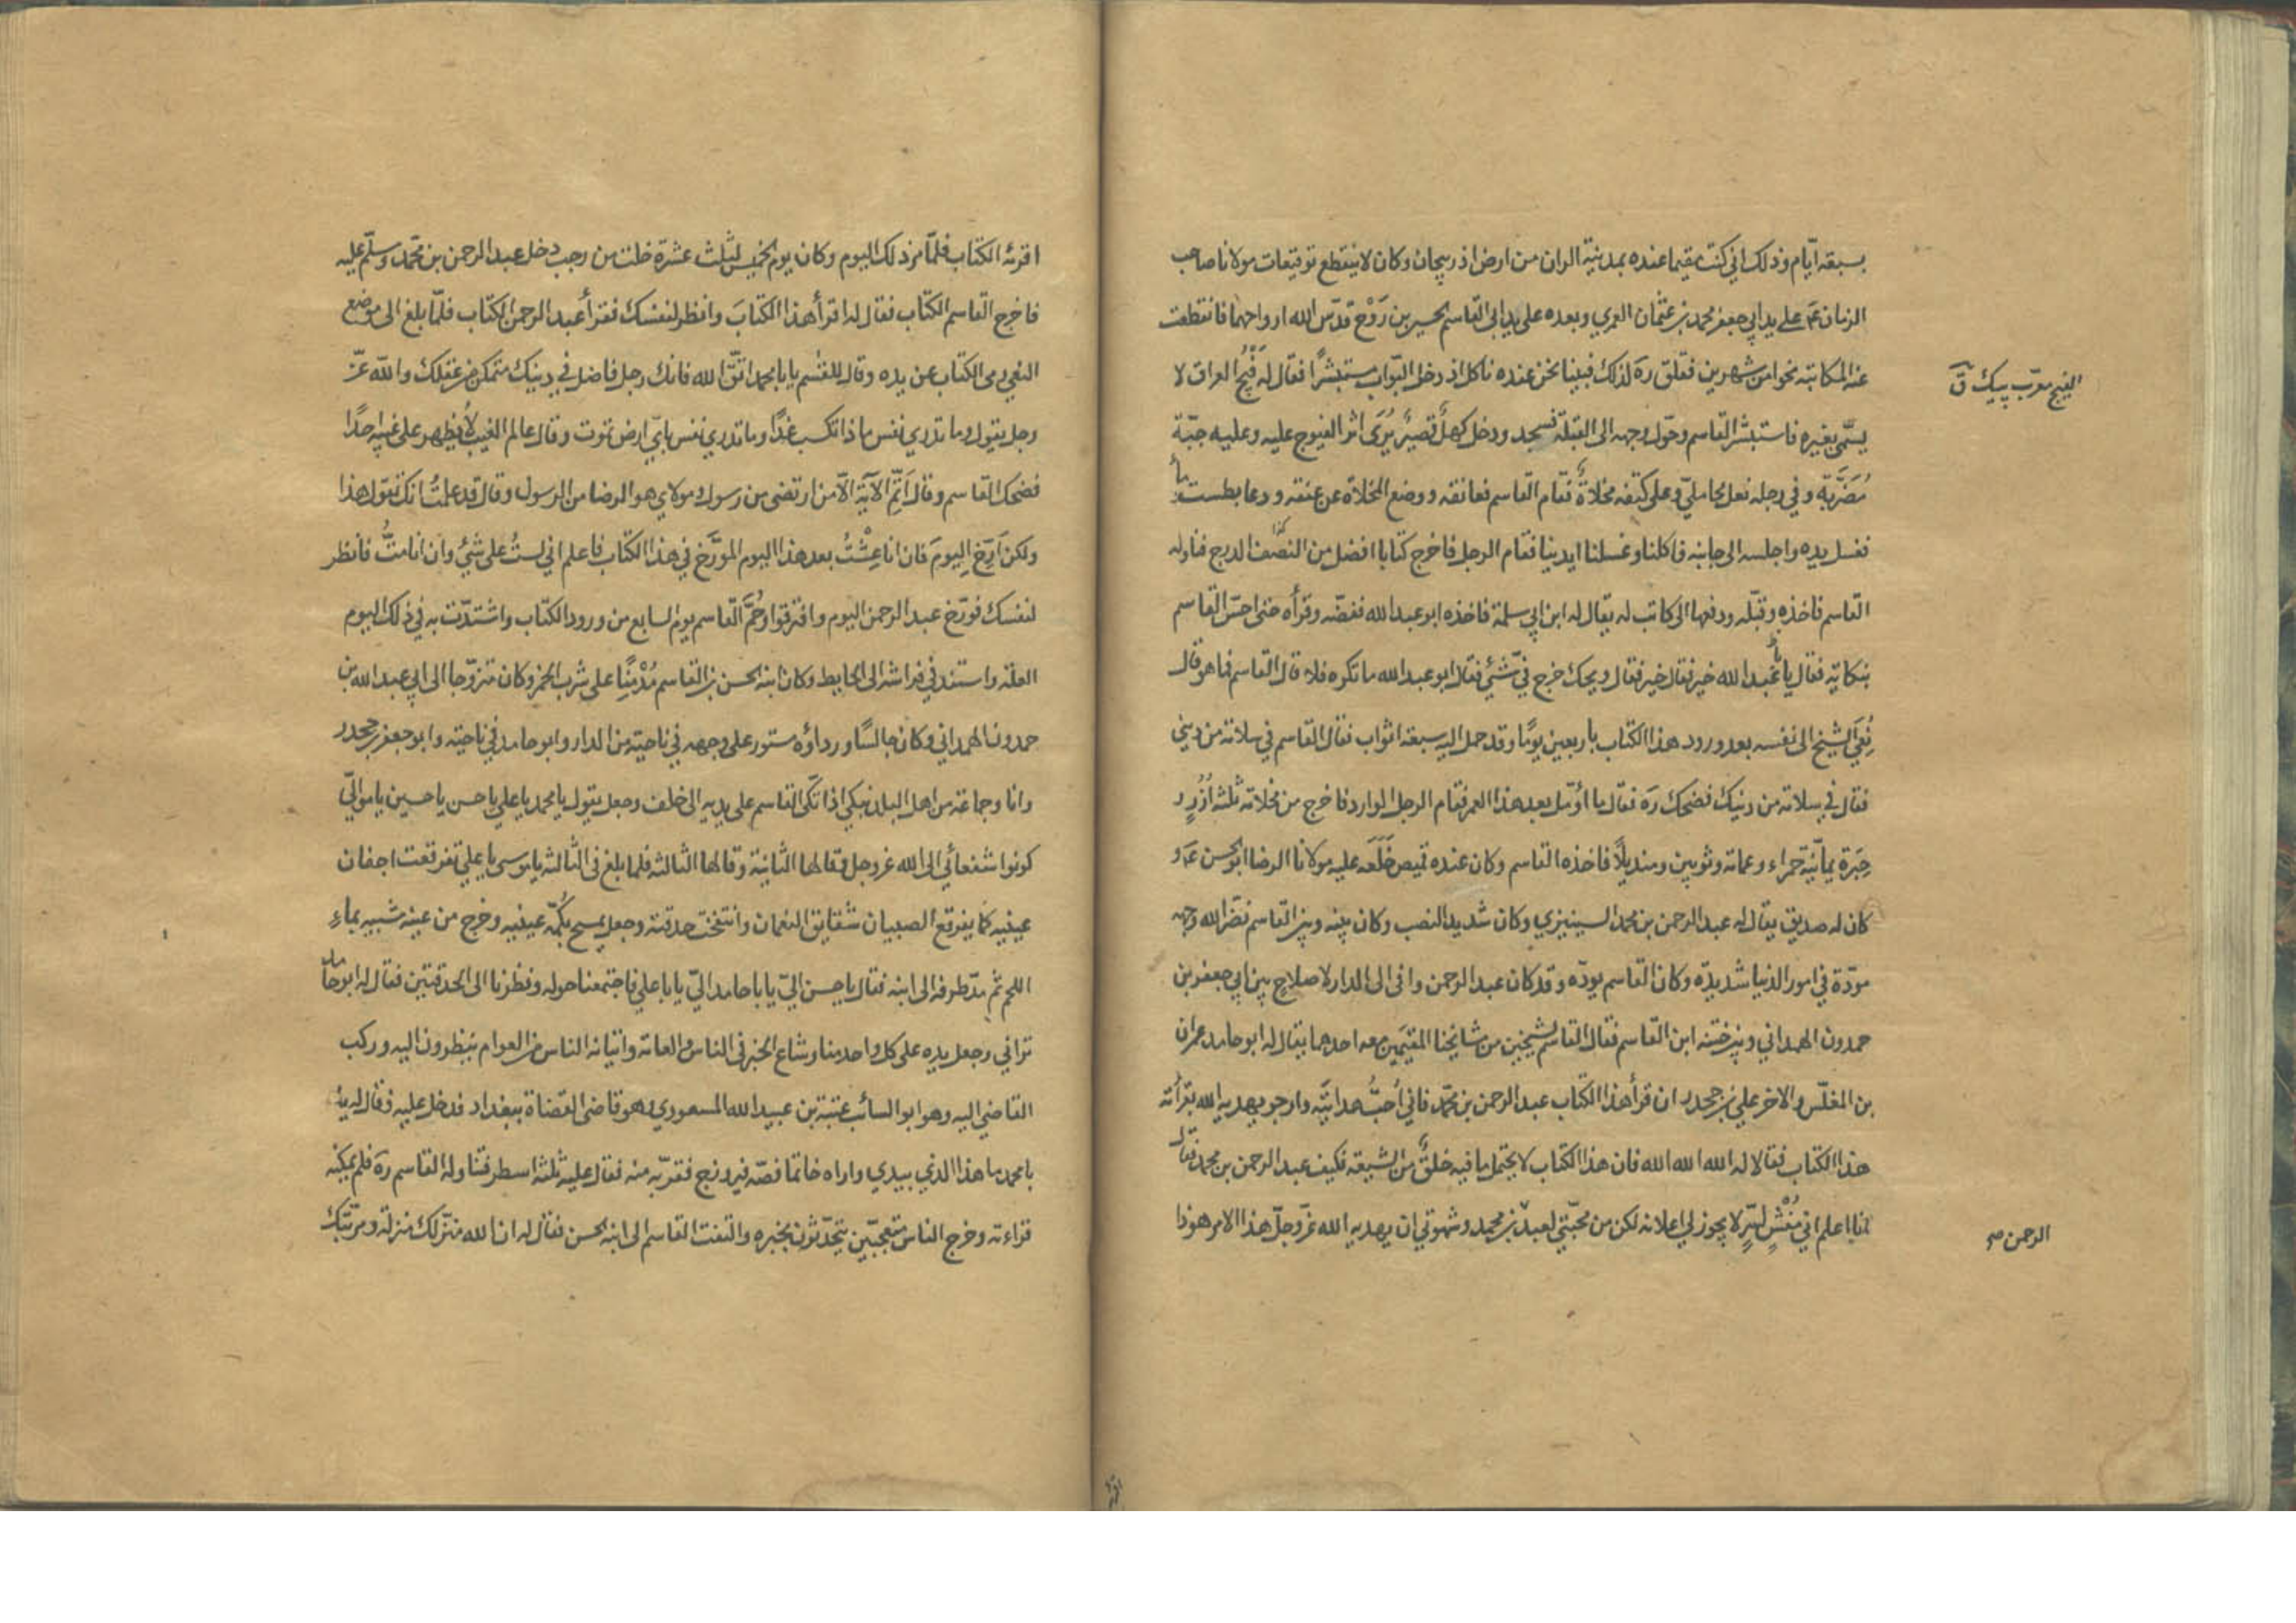 بسبعة ايّام وذلك اني كنت مقيما عنده بمدينة الران من ارض اذربيجان وكان لا ينقطع توقيعات مولانا صاحب
الزمان عم على يد ابي جعفر محمد بن عثمان العمري وبعده على يد ابى القاسم الحسين بن رَوْح قدّس الله ارواحهما فانقطعت
عنه المكاتبه نحوا من شهرين فقلق ره لذلك فبينا نحن عنده ناكل اذ دخل البّواب مستبشرًا فقال له فَيْجُ العراق لا
الفيج معرّب پيك ق
يسمّى بغيره فاستبشر القاسم وحوّل وجهه الى القبلة فسجد ودخل كهلٌ قصيرٌ يُرَى اثر الفيوج عليه وعليه جبّة
مُضَرَّبَة وفي رجله نعل محامليّ وعلى كتفه مخلاةٌ فقام القاسم فعانقه ووضع المخلاة عن عنقه ودعا بطست وماء
فغسل يده واجلسه الى جانبه فاكلنا وغسلنا ايدينا فقام الرجل فاخرج كتابا افضل من النصف الدرج فناوله
القاسم فاخذه وقبّله ودفعها الى كاتب له يقال له ابن ابي سلمة فاخذه ابو عبد الله ففضّه وقرأه حتى احسّ القاسم
بنكاية فقال يا با عبد الله خير فقال خير فقال ويحك خرج فيّ شئ فقال ابو عبد الله ما تكره فلا قال القاسم فما هو قال
نُعِيَ الشيخ الى نفسه بعد ورود هذا الكتاب باربعين يومًا وقد حمل اليه سبعة اثواب فقال القاسم في سلامة من ديني
فقال في سلامة من دينك فضحك ره فقال ما اؤمّل بعد هذا العمر فقام الرجل الوارد فاخرج من مخلاته ثلثة اُزُرٍ
حِبَرَة يمانيّة حمراء وعمامة وثوبين ومنديلًا فاخذه القاسم وكان عنده قميص خَلَعَه عليه مولانا الرضا ابو الحسن عم و
كان له صديق يقال له عبد الرحمن بن محمد السينيزي وكان شديد النصب وكان بينه وبين القاسم نضّر الله وجهه
مودّة في امور الدنيا شديدّه وكان القاسم يودّه وقد كان عبد الرحمن وافى الى الدار لاصلاح بين ابي جعفر بن
حمدون الهمداني وبين ختنه ابن القاسم فقال القاسم لشيخين من مشايخنا المقيمين معه احدهما يقال له ابو حامد عمران
بن المفلّس والاخر علي بن جحدر ان قرأ هذا الكتاب عبد الرحمن بن محمّد فاني اُحبّ هدايته وارجو يهديه الله بقرأته
هذا الكتاب فقالا له الله الله الله فان هذا الكتاب لا يحتمل ما فيه خلقٌ من الشيعة فكيف عبد الرحمن بن محمد فقال
لنا اعلم اني مُفْشٍ لسرٍّ لا يجوز لي اعلانه لكن من محبّتي لعبد بن محمد وشهوتي ان يهديه الله عزّ وجلّ هذا الامر هوذا
الرحمن صح
اقرئه الكتاب فلمّا مرّ ذلك اليوم وكان يوم الخميس لثلث عشرة خلت من رجب دخل عبد الرحمن بن محمّد وسلّم عليه
فاخرج القاسم الكتاب فقال له اقرأ هذا الكتابَ وانظر لنفسك فقرأ عبد الرحمن الكتاب فلمّا بلغ الى موضع
النعي رمى الكتاب عن يده وقال للقسم يا با محمد اتّق الله فانك رجل فاضل في دينك متمكن من عقلك والله عزّ
وجل يقول وما تدري نفس ماذا تكسب غدًا وما تدري نفس باىّ ارض تموت وقال عالم الغيب لا يُظهر على غيبه احدًا
فضحك القاسم وقال اَتِمّ الآية الّا من ارتضى من رسول ومولاي هو الرضا من الرسول وقال قد علمتُ انك تقول هذا
ولكن اَرِّخ اليومَ فان انا عِشْتُ بعد هذا اليوم المورَّخ في هذا الكتاب فاعلم اني لستُ على شئ وان انا متُّ فانظر
لنفسك فورّخ عبد الرحمن اليوم وافترقوا وحُمَّ القاسم يوم السابع من ورود الكتاب واشتدّت به في ذلك اليوم
العلة واستند في فراشه الى الحايط وكان ابنه الحسن بن القاسم مُدْمِنًا على شرب الخمر وكان متزوّجا الى ابي عبد الله بن
حمدون الهمداني وكان جالسًا ورداؤه مستور على وجهه في ناحية من الدار وابو حامد في ناحيته وابو جعفر بن جحدر
وانا وجماعة من اهل البلد نبكي اذ اتكى القاسم على يديه الى خلف وجعل يقول يا محمد يا علي يا حسن يا حسين يا مواليّ
كونوا شفعائي الى الله عز وجل وقالها الثانية وقالها الثالثه فلما بلغ في الثالثه يا موسى يا علي تفرقعت اجفان
عينيه كما يفرقع الصبيان شقايق النعمان وانتفخت حدقته وجعل يمسح بكُمّه عينيه وخرج من عينه شبيه بماءِ
اللحم ثم مدّ طرفه الى ابنه فقال يا حسن اليّ يا با حامد اليّ يا با علي فاجتمعنا حوله ونظرنا الى الحدقتين فقال له ابو حامد
تراني وجعل يده على كل واحد منا وشاع الخبر في الناس والعامة واتيانه الناس من العوام ينظرون اليه وركب
القاضي اليه وهو ابو السائب عتبة بن عبيد الله المسعودي وهو قاضى القضاة ببغداد فدخل عليه فقال له يا
با محمد ما هذا الذي بيدي واراه خاتما فصّه فيروزج فقرّبه منه فقال عليه ثلثه اسطر فتناوله القاسم ره فلم يمكنه
قراءته وخرج الناس متعجّبين يتحدّثون بخبره والتفت القاسم الى ابنه الحسن فقال له ان الله منزلك منزلة ومرتّبك